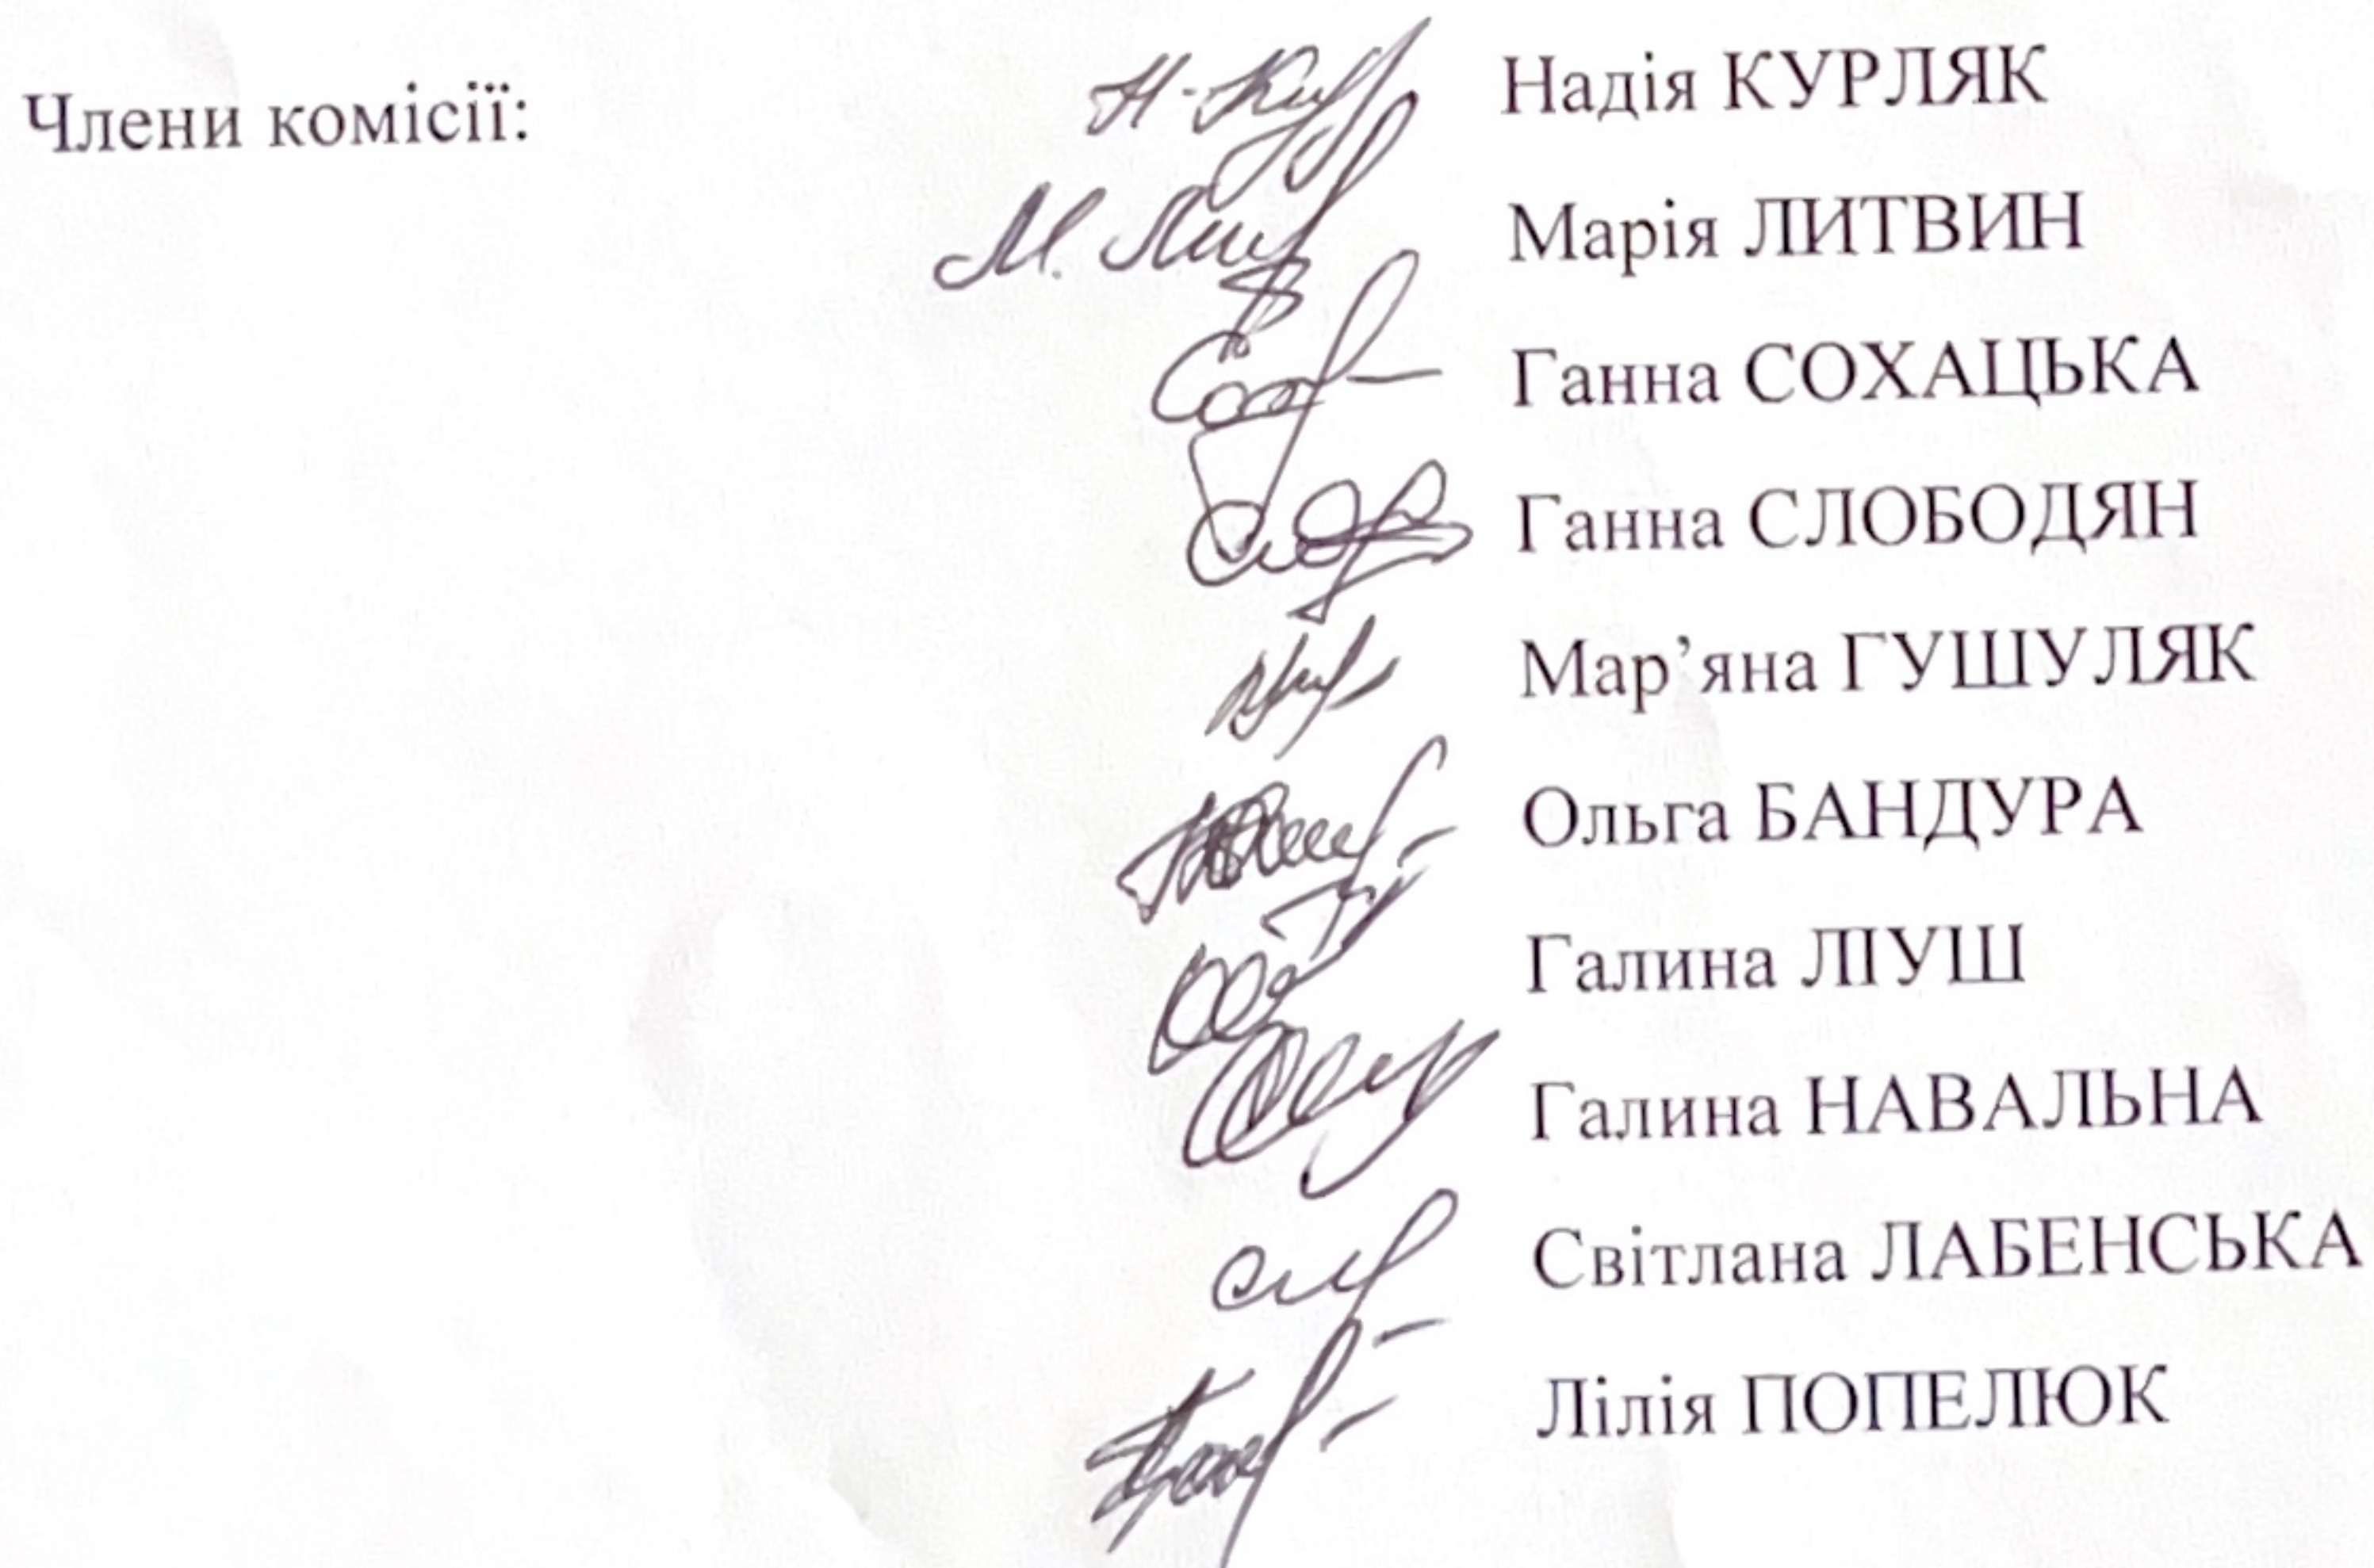 Члени комісії: Надія КУРЛЯК
Марія ЛИТВИН
Ганна СОХАЦЬКА
Ганна СЛОБОДЯН
Мар’яна ГУШУЛЯК
Ольга БАНДУРА
Галина ЛІУШ
Галина НАВАЛЬНА
Світлана ЛАБЕНСЬКА
Лілія ПОПЕЛЮК